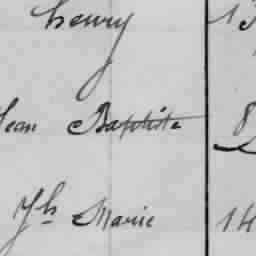 henry 13
Jean Baptiste 8
Jh Marie 14